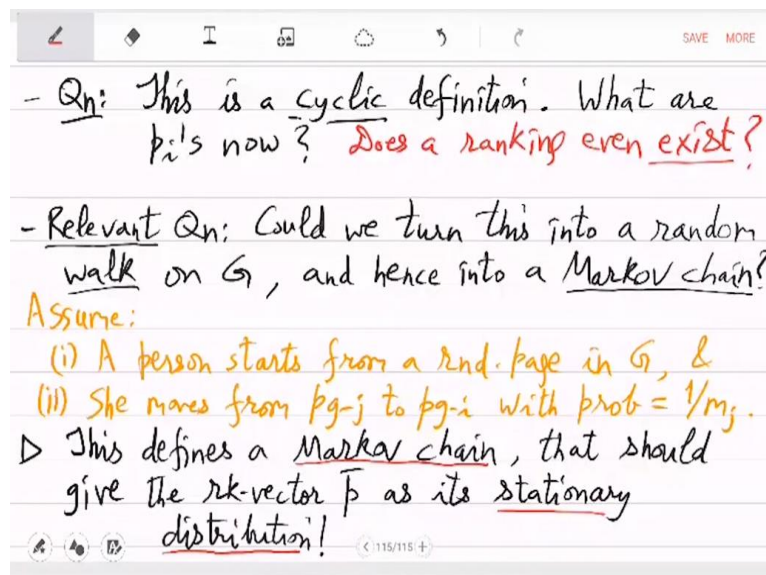 SAVE MORE
- Qn: This is a cyclic definition. What are
pi's now? Does a ranking even exist?
- Relevant Qn: Could we turn this into a random
walk on G, and hence into a Markov chain?
Assume:
(i) A person starts from a rnd. page in G, &
(ii) She moves from pg-j to pg-i with prob = 1/mj.
▷ This defines a Markov chain, that should
give the rk-vector p̅ as its stationary
distribution!
< 115/115 +